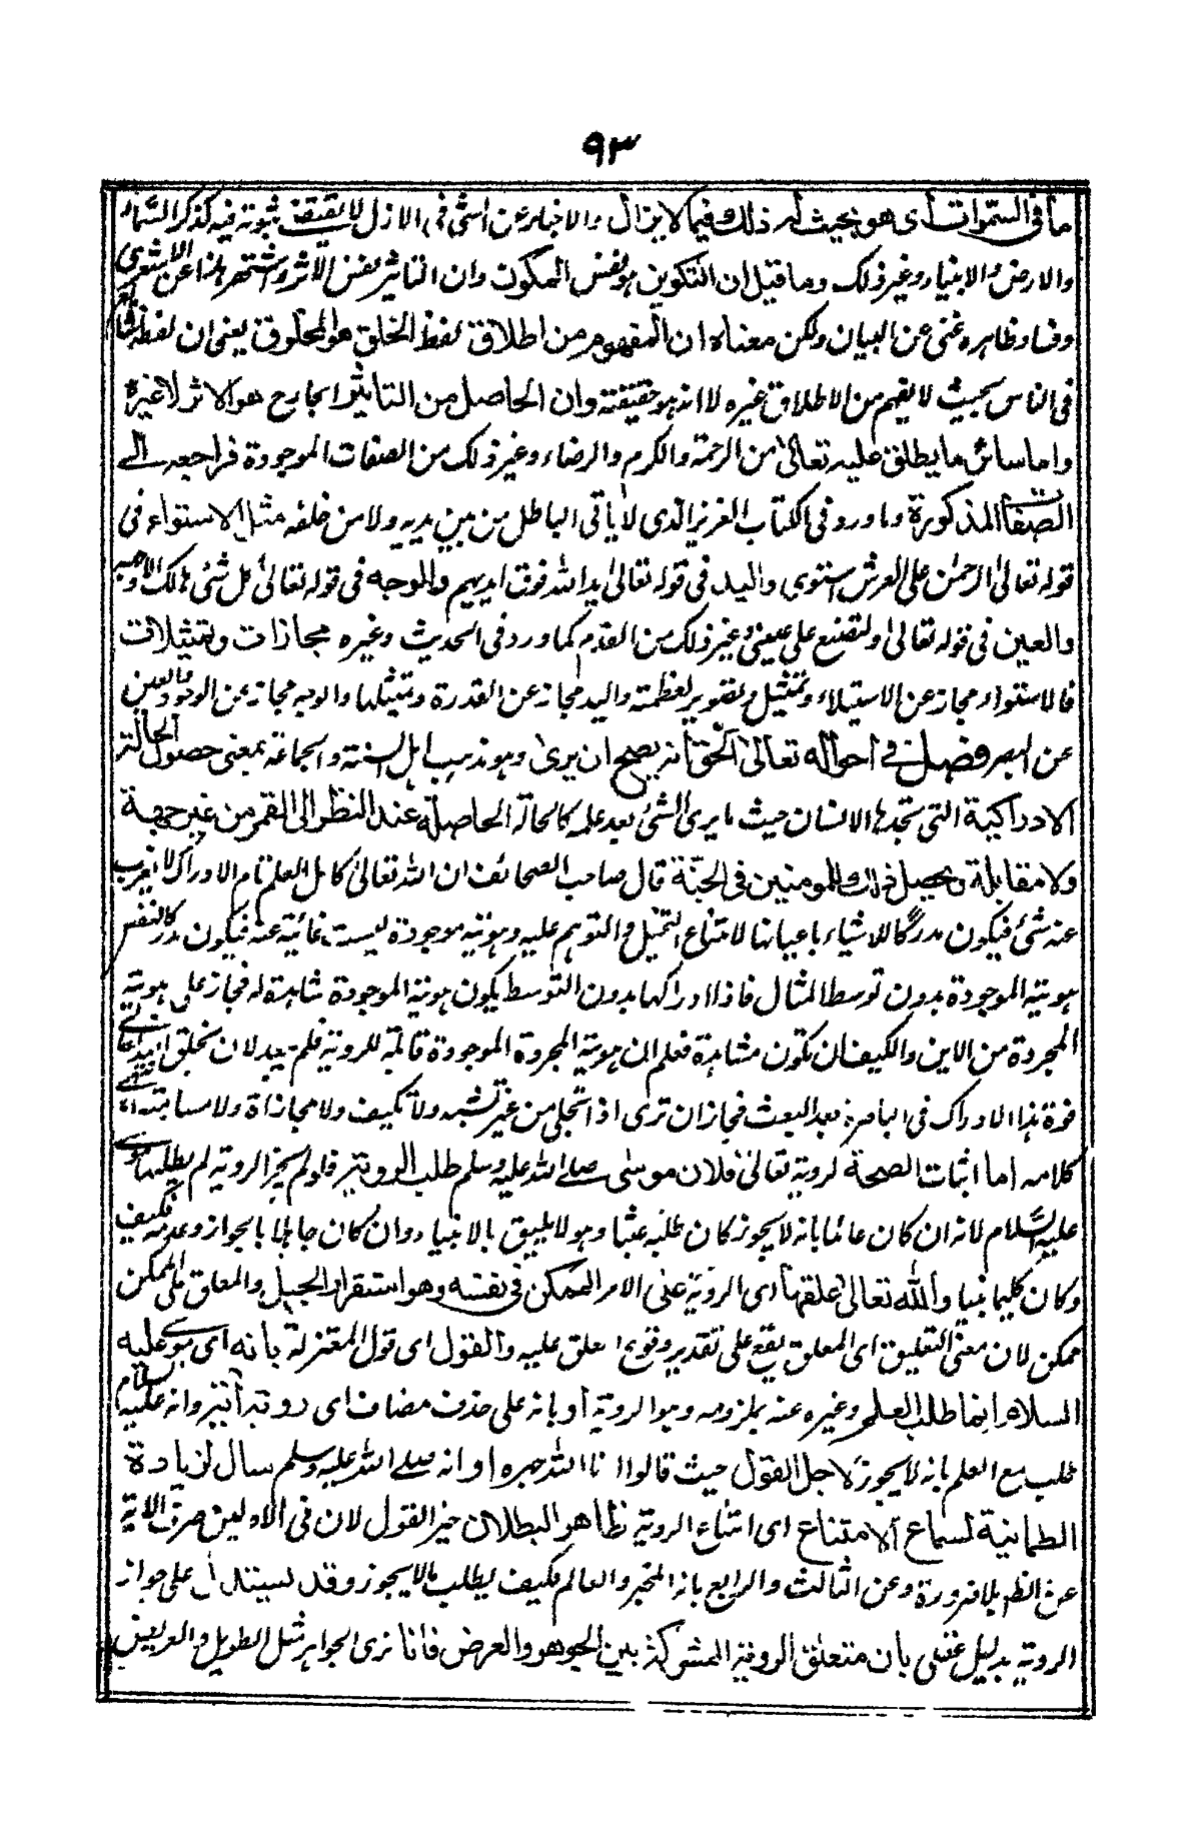 ٩٣
ما فی السموات أی هو بحیث له ذلك فیما لا یزال والاخبار عن الشئ فی الازل لا یقتضی ثبوته فیه کذکر السماء
والارض والانبیاء وغیر ذلک وما قیل ان التکوین هو نفس المکون وان التاثیر نفس الأثر واشتهر هذا عن الاشعری
وفساد ظاهره غنی عن البیان ولکن معناه ان المفهوم من اطلاق لفظ الخلق هو المخلوق یعنی ان لفظه شاع
فی الناس بحیث لا یفهم من الاطلاق غیره لا انه هو حقیقته وان الحاصل من التاثیر الخارج هو الاثر لا غیره
واما سائر ما یطلق علیه تعالی من الرحمة والکرم والرضاء وغیر ذلک من الصفات الموجودة فراجعه الی
الصفات المذکورة وما ورد فی الکتاب العزیز الذی لا یأتی الباطل من بین یدیه ولا من خلفه مثل الاستواء فی
قوله تعالی الرحمن علی العرش استوی والید فی قوله تعالی ید الله فوق ایدیهم والوجه فی قوله تعالی کل شئ هالک الا وجهه
والعین فی قوله تعالی ولتصنع علی عینی وغیر ذلک من القدم کما ورد فی الحدیث وغیره مجازات وتمثیلات
فالاستواء مجاز عن الاستیلاء وتمثیل وتصویر لعظمته والید مجاز عن القدرة وتمثیلها والوجه مجاز عن الوجود والعین
عن البصر فصل فی احواله تعالی الحق انه یصح ان یری وهو مذهب اهل السنة والجماعة بمعنی حصول الحالة
الادراکیة التی تجدها الانسان حیث ما یری الشئ بعد علمه کالحالة الحاصلة عند النظر الی القمر من غیر جهة
ولا مقابلة ویحصل ذلك للمومنین فی الجنة قال صاحب الصحائف ان الله تعالی کامل العلم تام الادراک لا یعزب
عنه شئ فیکون مدرکا للاشیاء باعیانها لامتناع التخیل والتوهم علیه وهویته موجودة لیست غائبة عنه فیکون مدرکا لنفس
هویته الموجودة بدون توسط المثال فاذا ادراکها بدون التوسط یکون هویته الموجودة مشاهدة له فجاز علی هویته
المجردة من الاین والکیف ان تکون مشاهدة فعلم ان هویته المجردة الموجودة قابلة للرویة فلم یبعد لان یخلق الله تعالی
قوة هذا الادراک فی الباصرة بعد البعث فجاز ان تری اذا تجلی من غیر تشبه ولا تکیف ولا محاذاة ولا مسامتة انتهی
کلامه اما اثبات الصحة لرویة تعالی فلان موسی صلی الله علیه وسلم طلب الرویة فلو لم یجز الرویة لم یطلبها موسی
علیه السلام لانه ان کان عالما بانه لا یجوز کان طلبه عبثا وهو لا یلیق بالانبیاء وان کان جاهلا بالجواز وعدمه فکیف
وکان کلیما نبیا والله تعالی علقها أی الرویة علی الامر الممکن فی نفسه وهو استقرار الجبل والمعلق علی الممکن
ممکن لان معنی التعلیق ای المعلق یقع علی تقدیر وقوع ما علق علیه والقول ای قول المعتزلة بانه ای موسی علیه
السلام انما طلب العلم وغیره عنه بملزومه وهو الرویة أو بانه علی حذف مضاف ای رویة آیته وانه علیه السلام
طلب مع العلم بانه لا یجوز لاجل القول حیث قالوا ارنا الله جهره او انه صلی الله علیه وسلم سال لزیادة
الطمانیة لسماع الامتناع ای امتناع الرویة ظاهر البطلان خبر القول لان فی الاولین صرف الآیة
عن الظاهر بلا ضرورة وعن الثالث والرابع بانه المخبر والعالم فکیف یطلب مالا یجوز وقد یستدل علی جواز
الرویة بدلیل عقلی بأن متعلق الرویة المشترکة بین الجوهر والعرض فانا نری الجواهر مثل الطویل والعریض